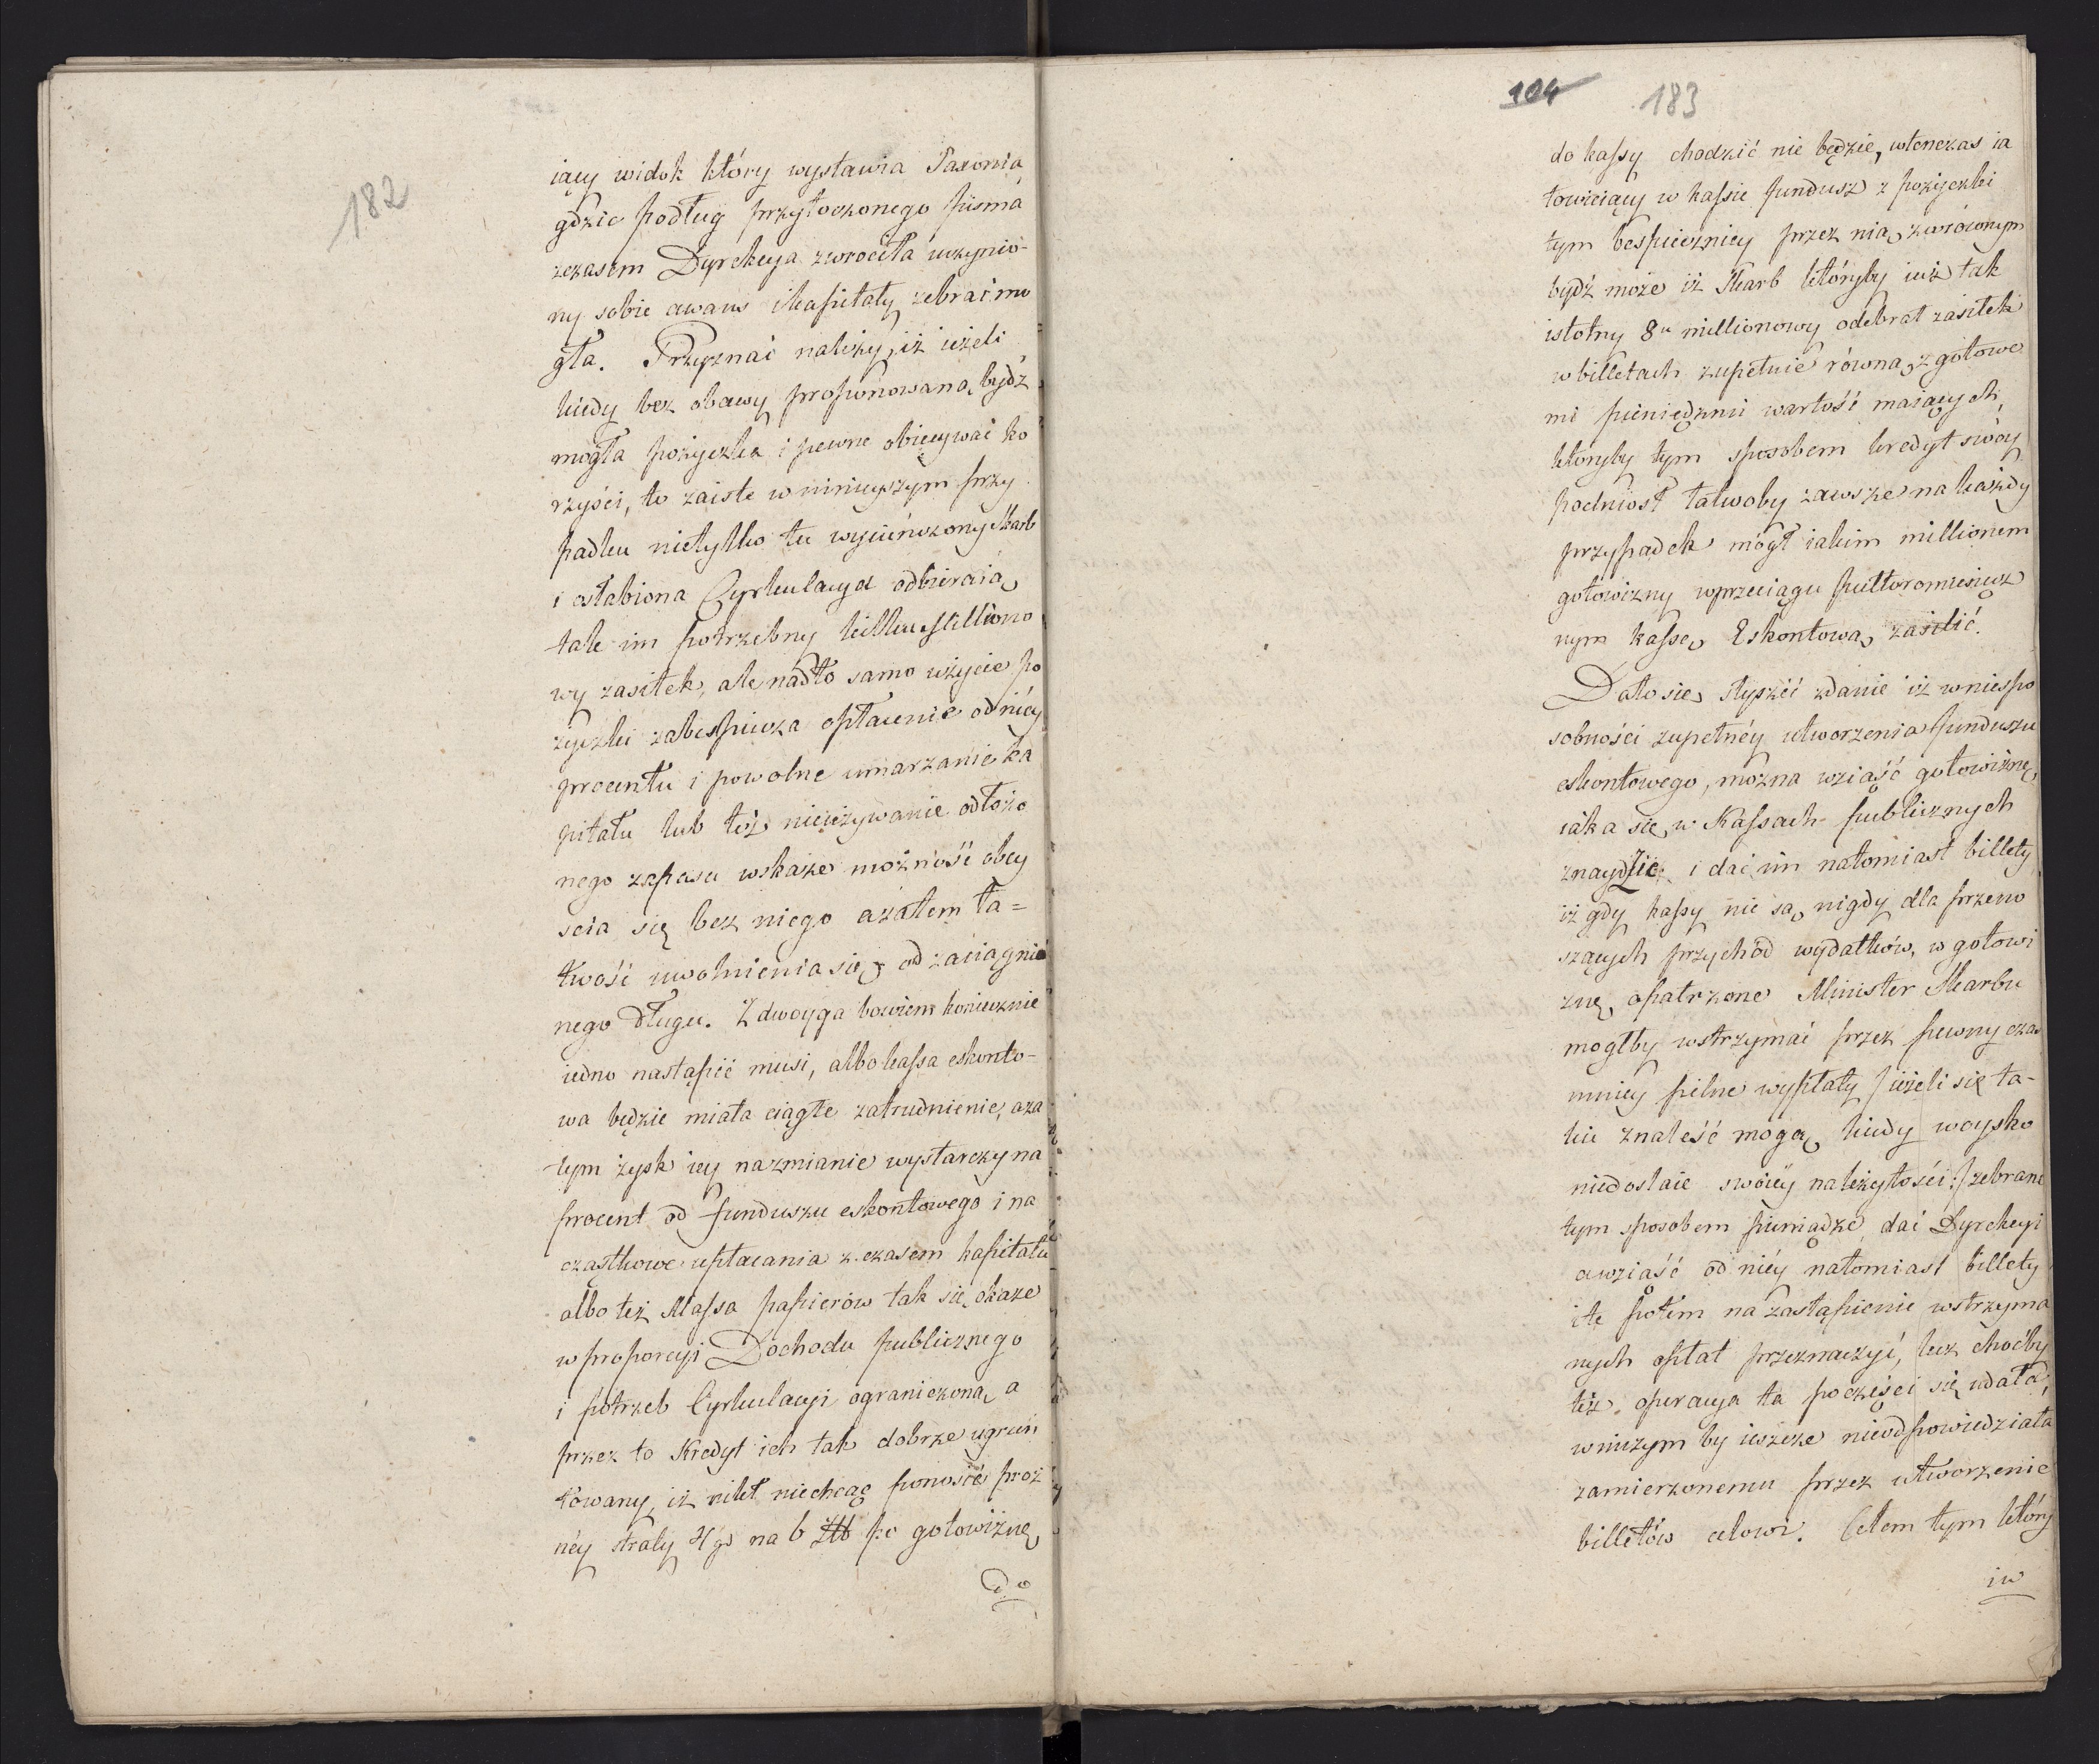 182
iący widok który wystawia Saxonia
gdzie podług przytoczonego pisma
zczasem Dyrekcya zwrociła uczynio-
ny sobie awans i kapitały zebrać mo
gła. Przyznać należy, iż ieżeli
kiedy bez obawy proponowaną bydź
mogła pożyczka i pewne obiecywać ko
rzyści, to zaiste w ninieyszym przy
padku nietylko tu wycieńczony Skarb
i osłabiona Cyrkulacya odbieraią
tak im potrzebny kilku Milliono
wy zasiłek, ale nadto samo użycie po
życzki zabespiecza opłacenie od niéy
procentu i powolne umarzanie ka
pitału lub też nieużywanie odłożo
nego zapasu wskaże możność obey
scia się bez niego azatem ła=
twość uwolnienia się od zaciągnio
nego długu. Z dwoyga bowiem koniecznie
iedno nastąpić musi, albo kassa eskonto-
wa będzie miała ciągłe zatrudnienie, aza
tym zysk iey nazmianie wystarczy na
procent od funduszu eskontowego i na
cząstkowe upłacania z czasem kapitału
albo też Massa papierów tak się okaże
w proporcyi Dochodu publicznego
i potrzeb Cyrkulacyi ograniczoną, a
przez to Kredyt ich tak dobrze ugrun
towany, iż nikt niechcąc ponosić proż
néy straty 4 gr na 6 po gotowiznę
do
104 183
do kassy chodzić nie będzie, wtenczas za
łowiciący w kassie fundusz z pożyczki
tym bespieczniey przez nią zwróconym
bydź może iż Skarb któryby iuż tak
istotny 8u millionowy odebrał zasiłek
w billetach zupełnie równą z gotowe
mi pieniędzmi wartość maiących,
któryby tym sposobem kredyt swóy
podniosł łatwoby zawsze na każdy
przypadek mógł iakim millionem
gotowizny w przeciągu pułtoromiesięcz
nym kassę Eskontową zasilić.
Dało się słyszeć zdanie iż w niespo
sobności zupełnéy utworzenia funduszu
eskontowego, można wziąść gotowiznę
iaka się w Kassach publicznych
znaydzie i dać im natomiast billety
iż gdy kassy nie są nigdy dla przeno
szących przychód wydatków, w gotowi
znę opatrzone Minister Skarbu
mogłby wstrzymać przez pewny czas
mniey pilne wypłaty / ieżeli się ta-
kie znaleść mogą, kiedy woysko
niedostaie swoiéy należytości :/ zebrane
tym sposobem pieniądze, dać Dyrekcyi
a wziąść od niéy natomiast billety
i te potém na zastąpienie wstrzyma
nych opłat przeznaczyć, lecz choćby
téż operacya ta poczęści się udała,
w niczym by ieszcze nieodpowiedziała
zamierzonemu przez utworzenie
billetów celowi. Celem tym który
iw